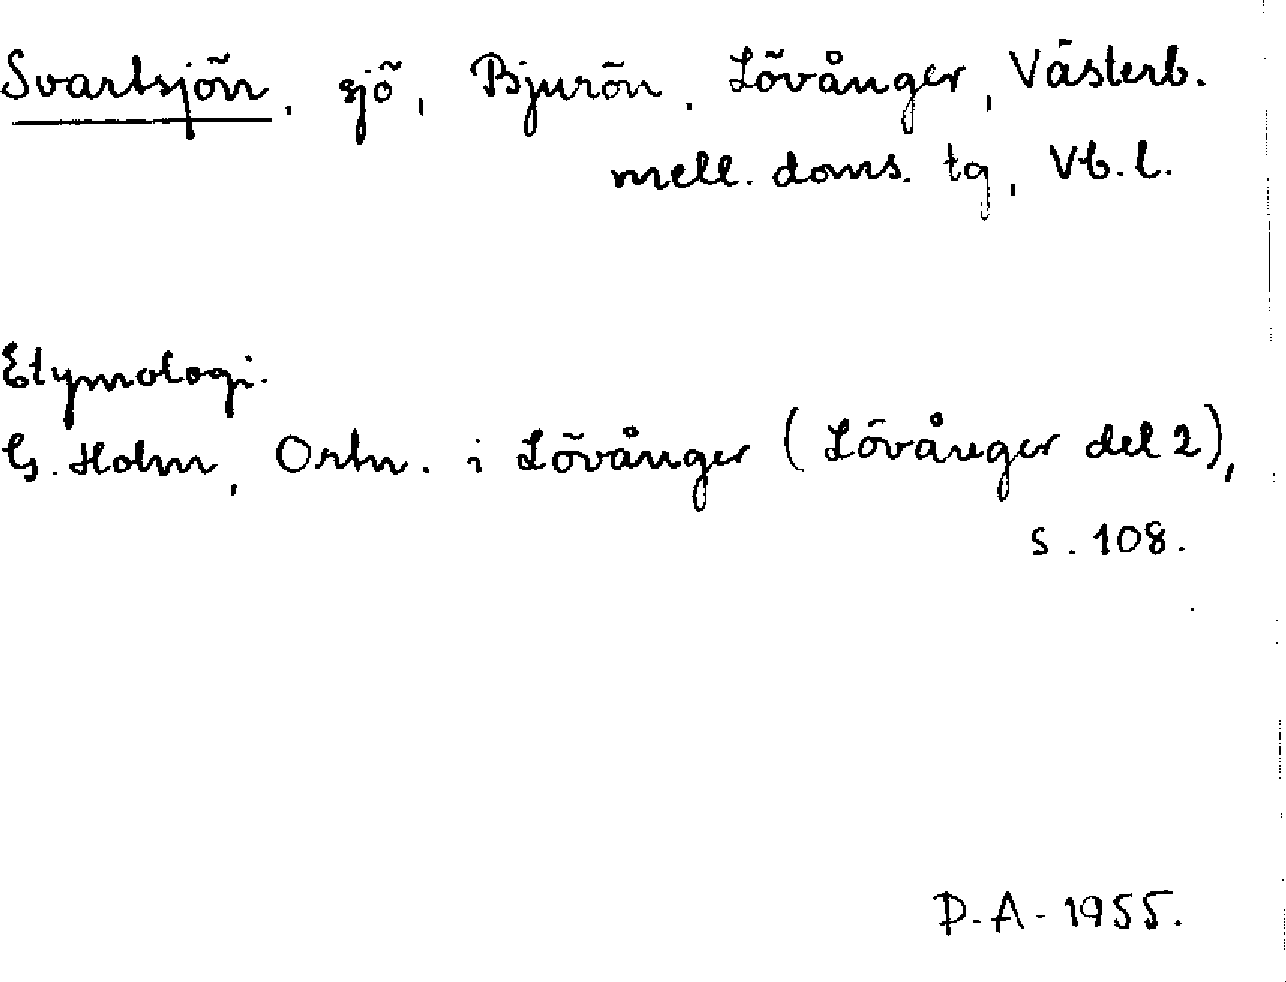 Svartsjön, sjö, Bjurön, Lövånger, Västerb.
mell. doms. tg, Vb. l.
Etymologi.
G. Holm, Ortn. i Lövånger (Lövånger del 2),
s. 108.
D. A. 1955.